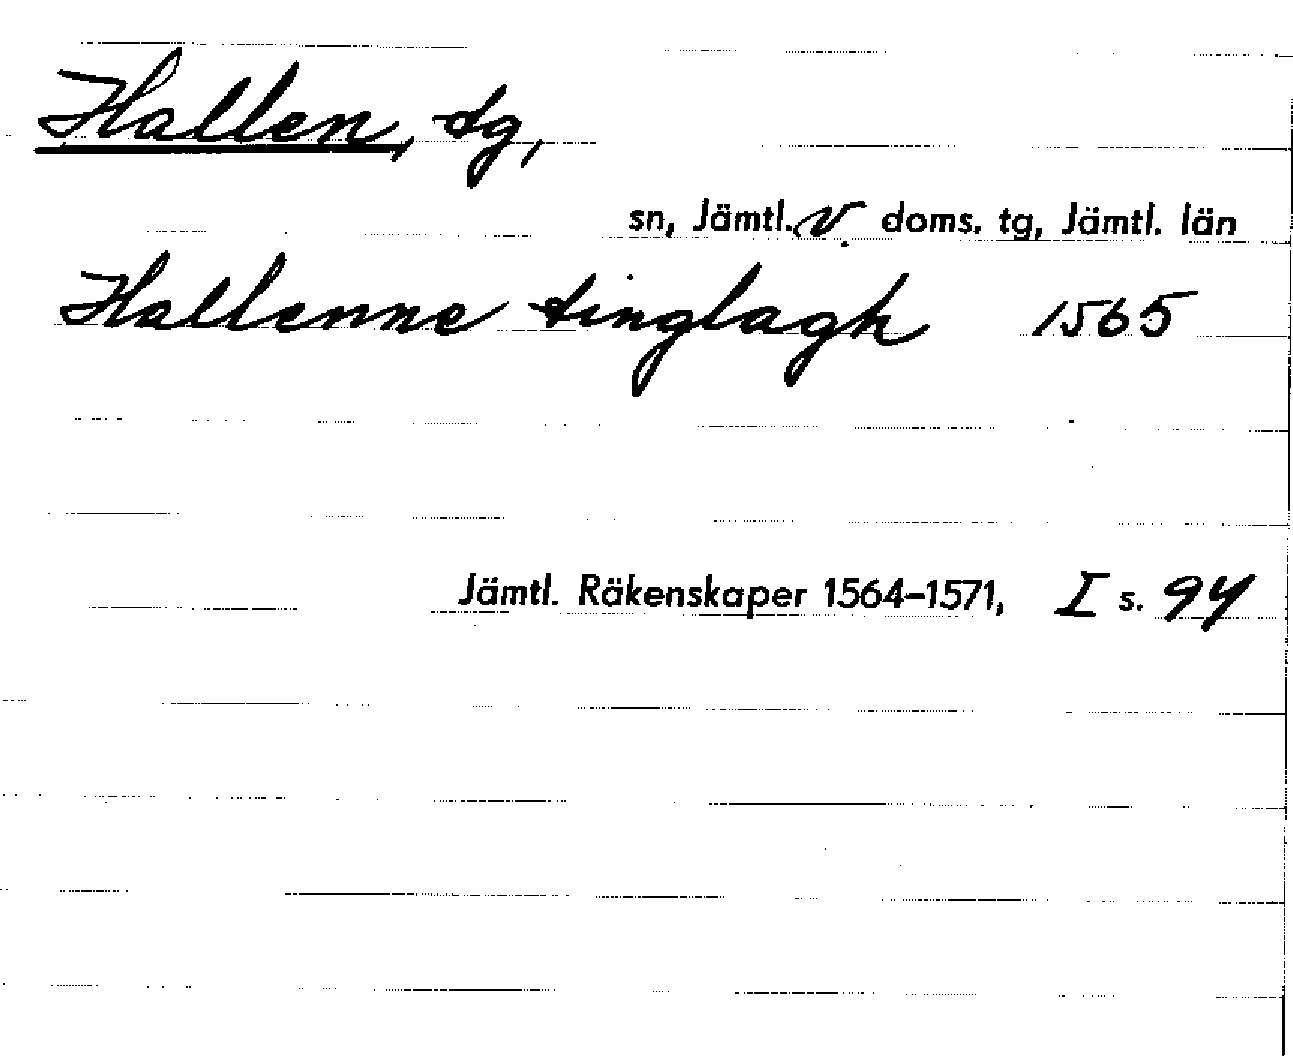 Hallen, tg,
sn, Jämtl. V. doms. tg, Jämtl. län
Hallenne tinglagh 1565
Jämtl. Räkenskaper 1564–1571, I s. 94